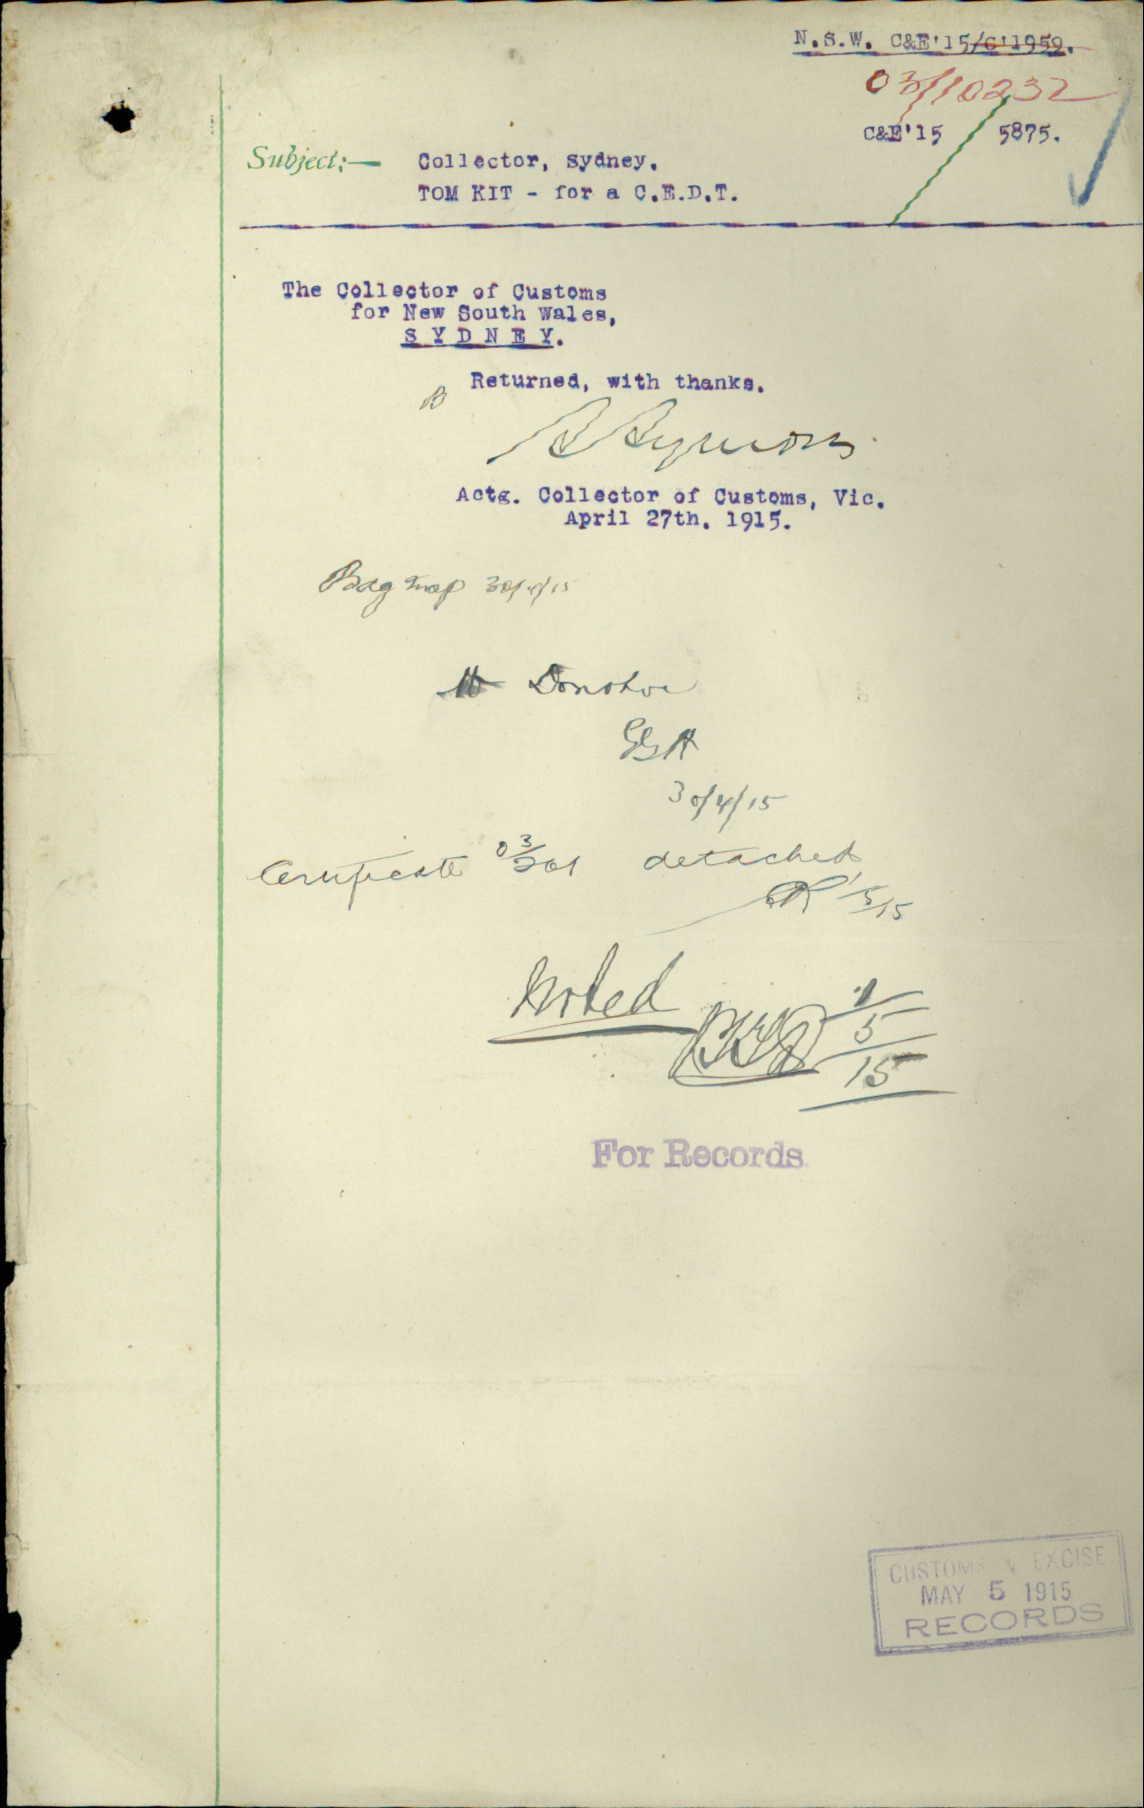 N.S.W. C&E'15/C'1959.
03/10232
C&E'15 / 5875.
Subject:— Collector, Sydney.
TOM KIT - for a C.E.D.T.
The Collector of Customs
for New South Wales,
SYDNEY.
Returned, with thanks.
Actg. Collector of Customs, Vic.
April 27th. 1915.
30/4/15
Donohoe
30/4/15
Certificate 03/201 detached
/5/15
Noted
1/5/15
For Records
CUSTOMS & EXCISE
MAY 5 1915
RECORDS